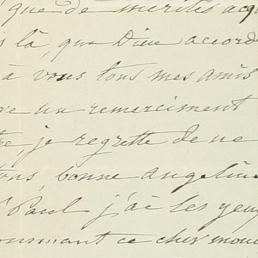 que de mérites acq
là, que Dieu accord
à vous tous mes amis
un remerciment
je regrette de ne
bonne Angeline
Paul j'ai les yeux
ce cher mou